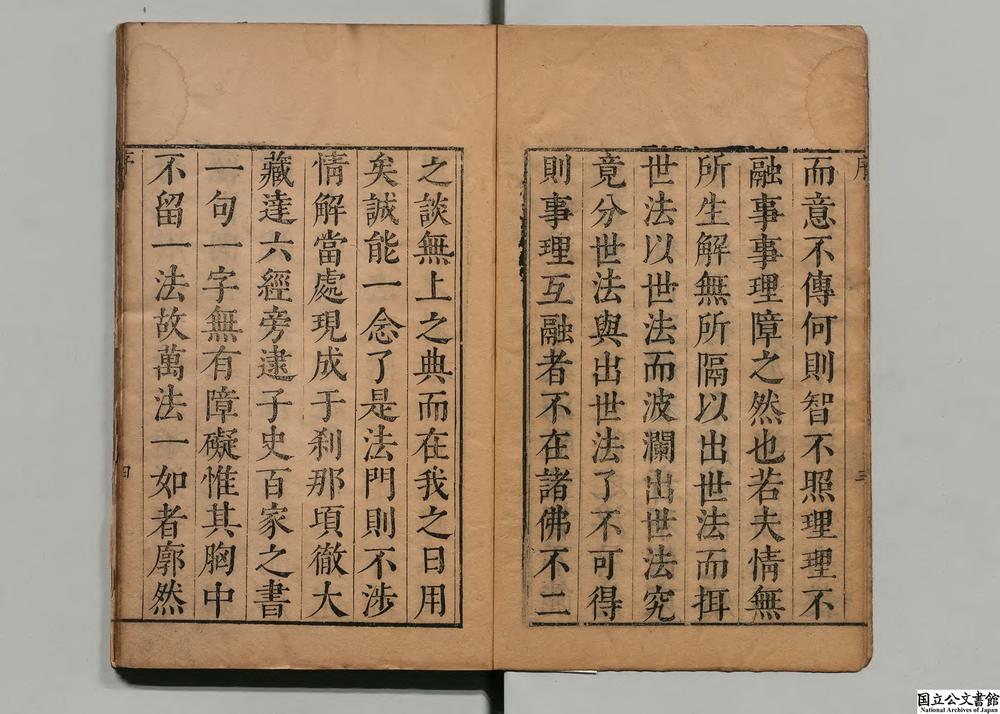 序
三
而意不傳何則智不照理理不
融事事理障之然也若夫情無
所生解無所隔以出世法而揖
世法以世法而波瀾出世法究
竟分世法與出世法了不可得
則事理互融者不在諸佛不二
之談無上之典而在我之日用
矣誠能一念了是法門則不涉
情解當處現成于刹那頃徹大
藏達六經旁逮子史百家之書
一句一字無有障礙惟其胸中
不留一法故萬法一如者廓然
序
四
国立公文書館
National Archives of Japan